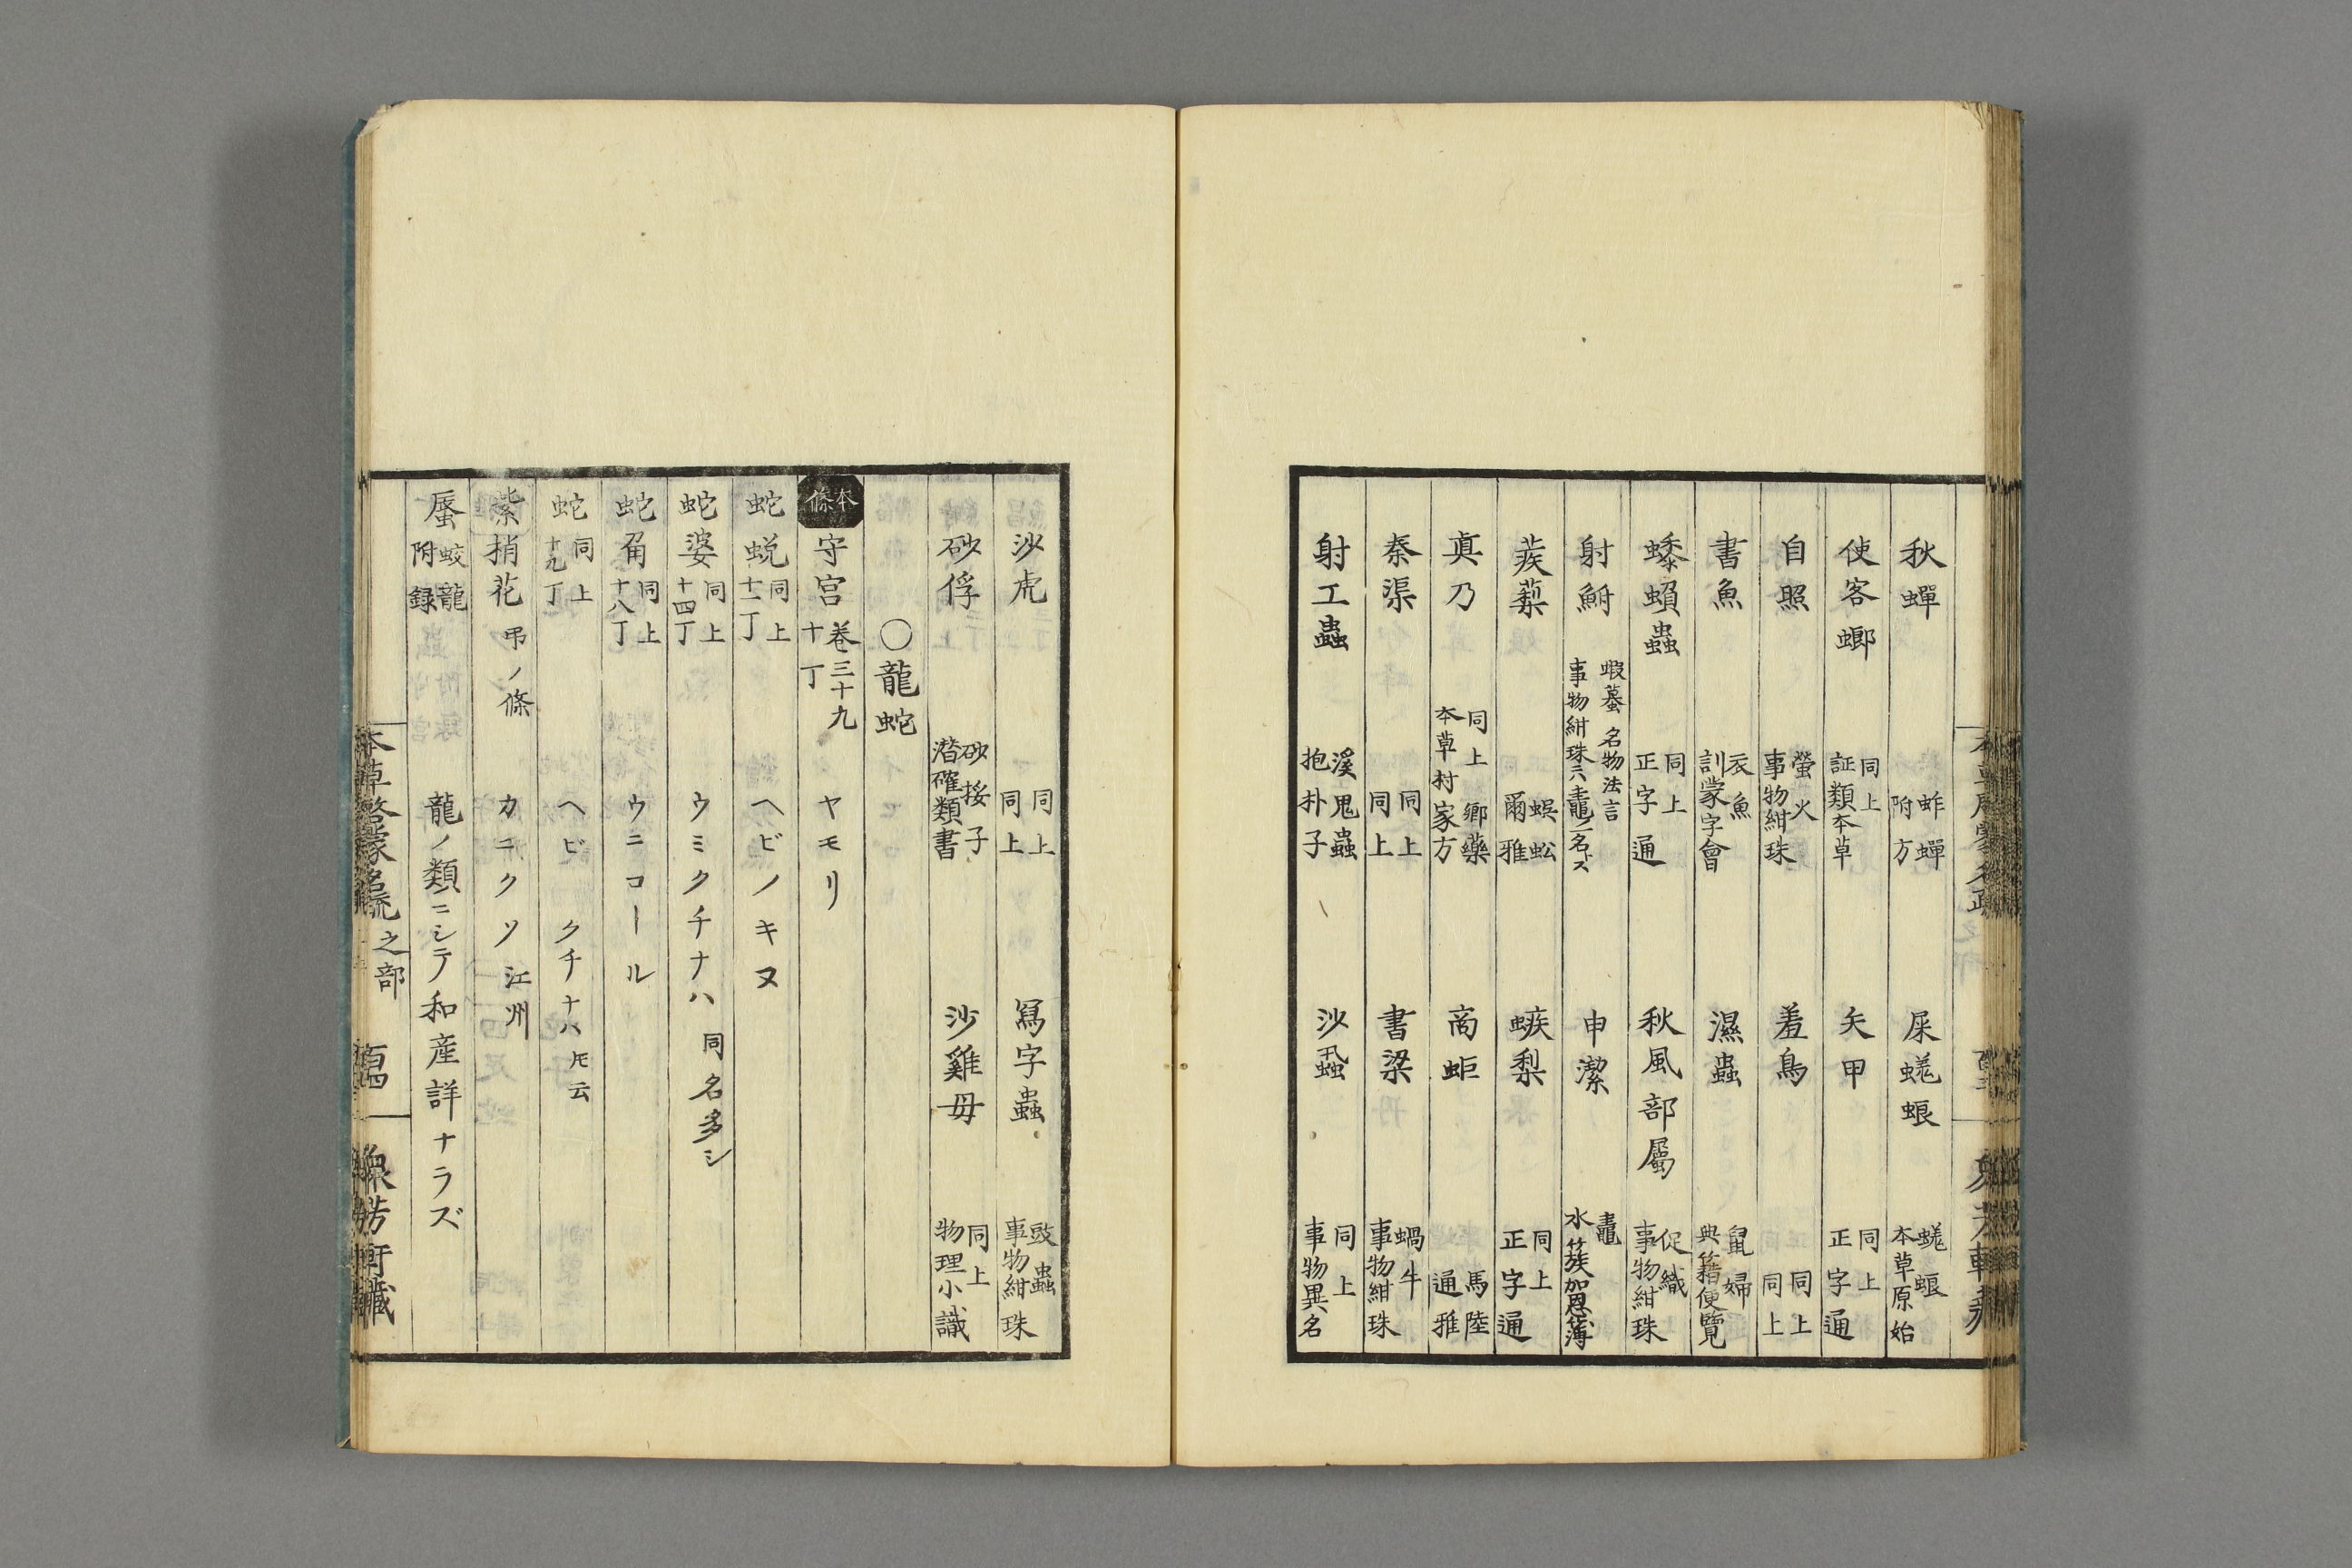 秋蟬 蚱蟬附方 屎蜣蜋 蜣蜋本草原始
使客螂 同上証類本草 矢甲 同上正字通
自照 螢火事物紺珠 羞鳥 同上同上
書魚 衣魚訓蒙字會 濕蟲 鼠婦典籍便覽
䗪蟲 同上正字通 秋風部屬 促織事物紺珠
射鮒 蝦蟇名物法言事物紺珠六鼃ノ一名トス 申潔 鼃水簇加恩簿
蒺蔾 蜈蚣爾雅 螏梨 同上正字通
真乃 同上鄉藥本草村家方 商蚷 馬陸通雅
秦渠 同上同上 書梁 蝸牛事物紺珠
射工蟲 溪鬼蟲抱扑子 沙蝨 同上事物異名
沙虎 同上同上 冩字蟲 豉蟲事物紺珠
砂俘 砂挼子潛確類書 沙雞毋 同上物理小識
〇龍蛇
本條 守宮 卷三十九十丁 ヤモリ
蛇蛻 同上十一丁 ヘビノキヌ
蛇婆 同上十四丁 ウミクチナハ 同名多シ
蛇角 同上十八丁 ウニコール
蛇 同上十九丁 ヘビ クチナハ 𪜈云
紫梢花 弔ノ條 カニクソ 江州
蜃 蛟龍附録 龍ノ類ニシテ和産詳ナラズ
本草啓蒙名疏 之部 百四 衆芳軒藏